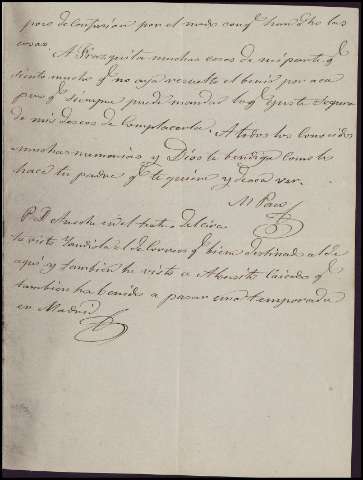 poco de confusion por el modo conq.e han dho las
cosas.
A Frasquita muchas cosas de mi parte q.e
siento mucho q.e no aya resuelto el benir por aca
pero q.e siempre puede mandar lo q.e guste segura
de mis deseos de Complacerla. A todos los Conocidos
muchas memorias y Dios te bendiga como lo
hace tu padre q.e te quiere y desea ver.
M Paez
P.D. Anoche en el teatro del circo
he visto Candiola el de Correos q.e biene destinado al de
aqui y tambien he visto a
tambien ha benido a pasar una temporada
en Madrid